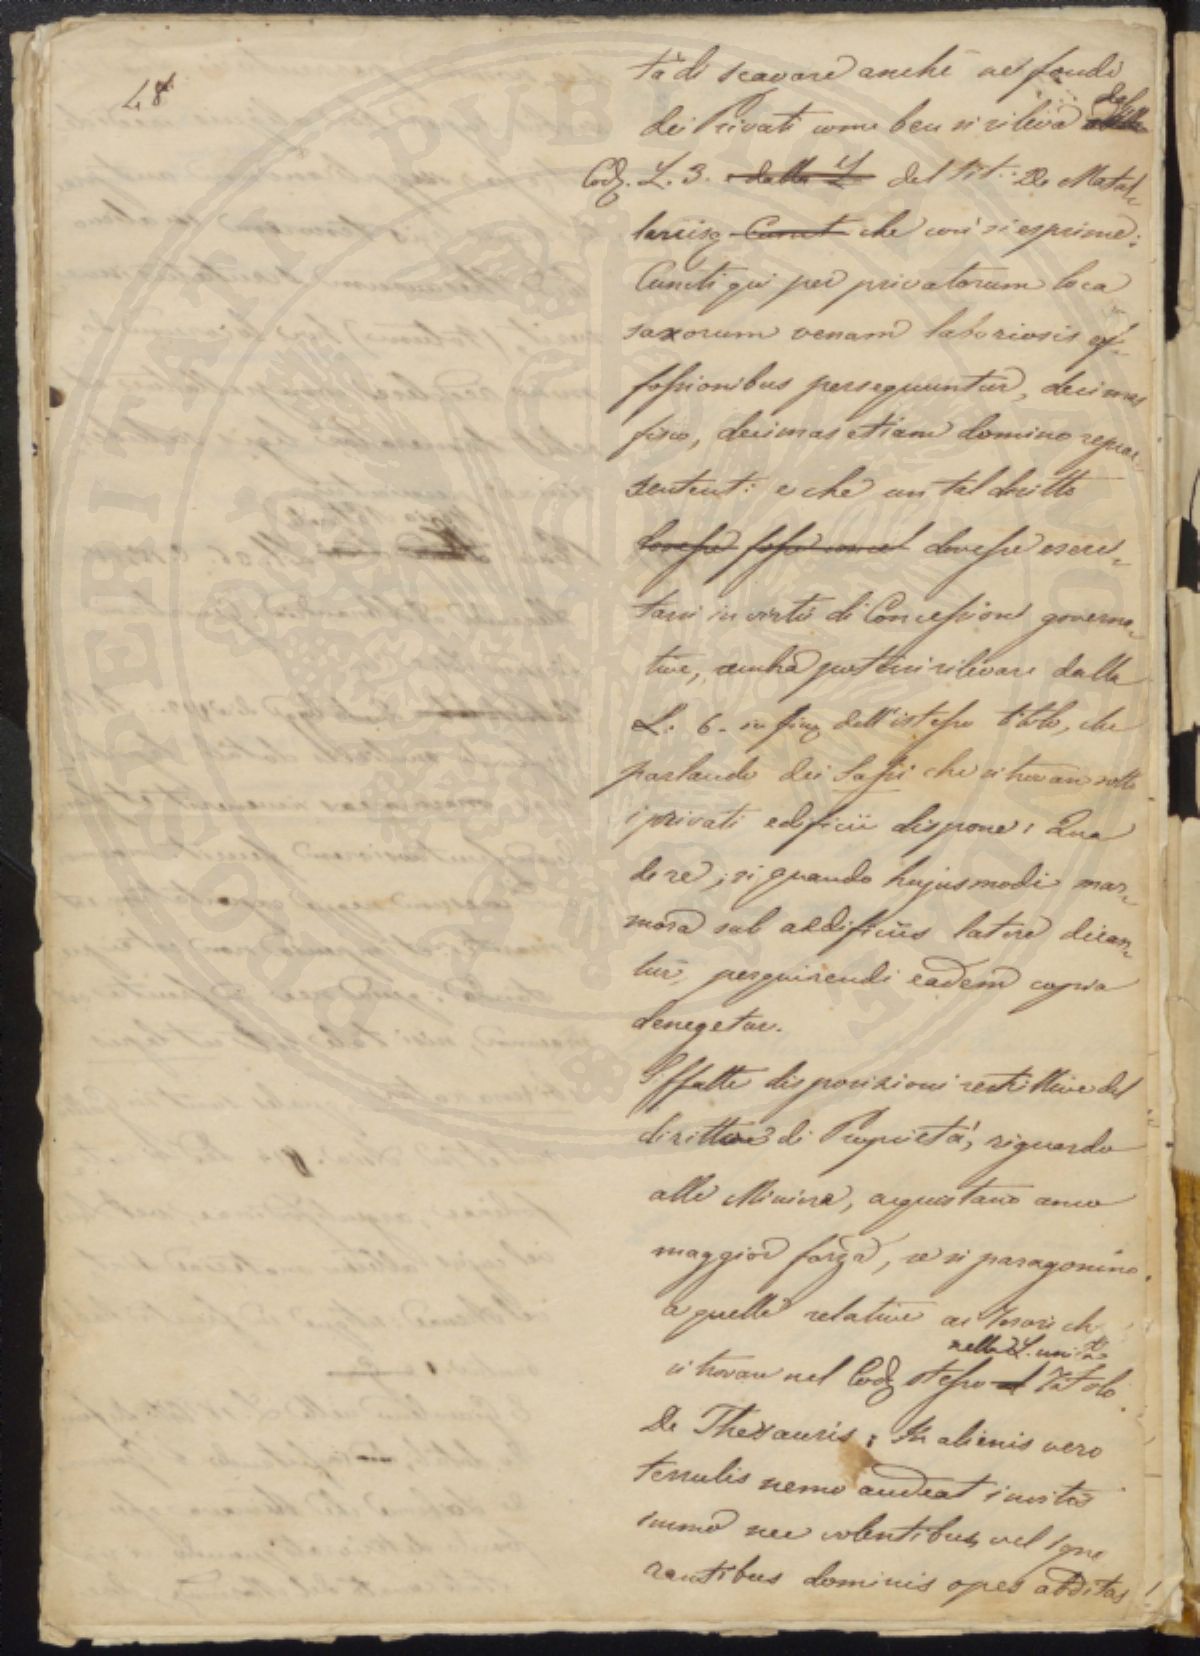 48
tà di scavare anche nei fondi
dei Privati come ben si rileva dalla
Cod. L. 3. dalla L del tit. De Metal-
lariis Cunct che così si esprime:
Cuncti qui per privatorum loca
saxorum venam laboriosis ef-
fossionibus persequuntur, decimas
fisco, decimas etiam domino reprae-
sentent: e che un tal dritto
dovesse fosse dovesse eserci-
tarsi in virtù di Concessioni governa-
tive, sembra potersi rilevare dalla
L. 6. in fin dell'istesso titolo, che
parlando dei Sassi che si trovan sotto
i privati edificii dispone: Qua
de re, si quando hujusmodi mar-
mora sub aedificiis latere dican-
tur, perquirendi eadem copia
denegetur.
Siffatte disposizioni restrittive del
diritto di Proprietà, riguardo
alle Miniere, acquistano anco
maggior forza, se si paragonino
a quelle relative ai Tesori ch
nella L. unica
si trovan nel Cod stesso al Titolo
De Thesauris: In alienis vero
terrulis nemo audeat invitis
immo nec volentibus, vel igno
rantibus dominis opes abditas